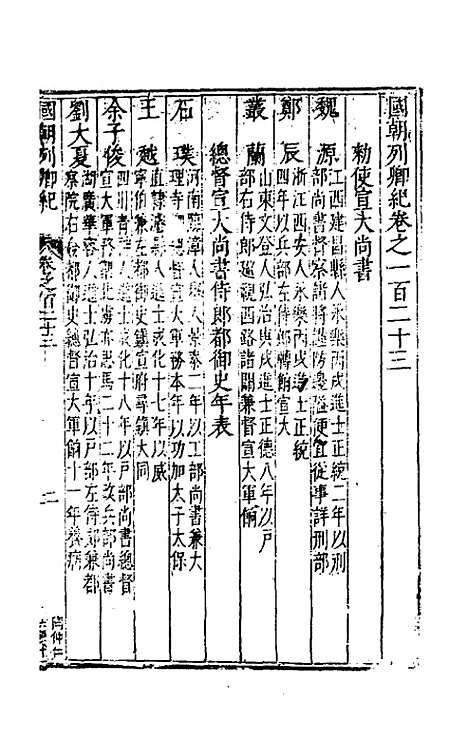 國朝列卿紀卷之一百二十三
勅使宣大尚書
魏源 江西建昌縣人永樂丙戌進士正統二年以刑
部尚書督察諸將邊防便宜從事詳刑部
鄭辰 浙江西安人永樂丙戌進士正統
四年以兵部左侍郎轉餉宣大
叢蘭 山東文登人弘治庚戌進士正德八年以戶
部右侍郎巡視西路諸關兼督宣大軍餉
總督宣大尚書侍郎都御史年表
石璞 河南臨漳人景泰二年以工部尚書兼大
理寺總督宣大軍務本年以功加太子太保
王越 直隸濬縣人進士成化十七年以威
寧伯兼左都御史鎮宣府尋鎮大同
余子俊 四川青神人進士成化十八年以戶部尚書總督
宣大軍務兼二十二年改兵部尚書
劉大夏 湖廣華容人進士弘治十年以戶部左侍郎兼都
察院右僉都御史總督宣大軍餉十一年養病
國朝列卿紀
卷之百二十三
一